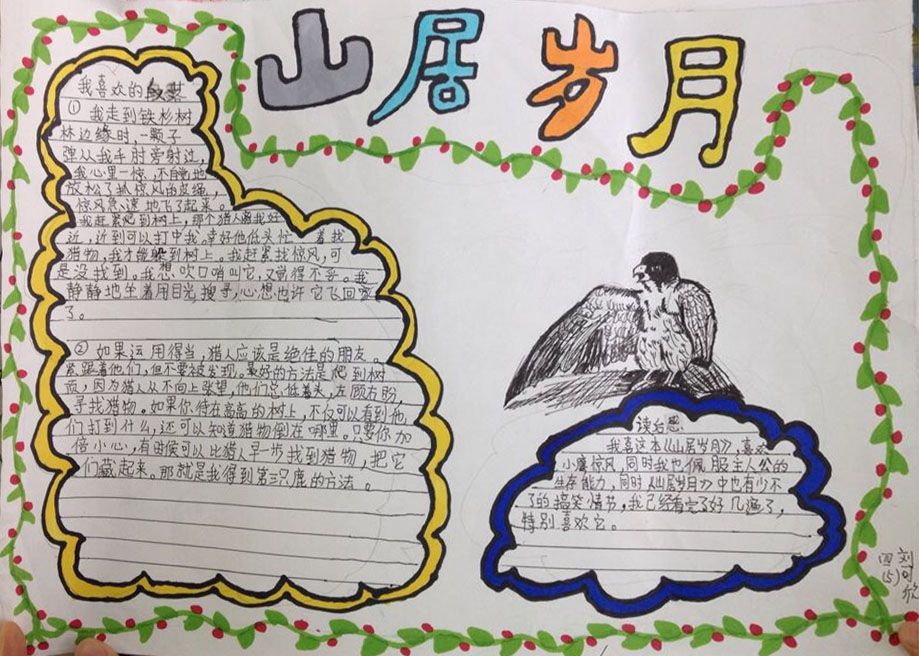 山居岁月
我喜欢的段落
① 我走到铁杉树
林边缘时,一颗子
弹从我手肘旁射过,
我心里一惊,不自觉地
放松了抓惊风的皮绳,
惊风急速地飞了起来。
我赶紧爬到树上,那个猎人离我好
近,近到可以打中我。幸好他低头忙 着找
猎物,我才能躲到树上。我赶紧找惊风,可
是没找到。我想吹口哨叫它,又觉得不妥。我
静静地坐着用目光搜寻,心想也许它飞回家
了。
② 如果运用得当,猎人应该是绝佳的朋友。
紧跟着他们,但不要被发现。最好的方法是爬到树
顶,因为猎人从不向上张望,他们总低着头,左顾右盼,
寻找猎物。如果你待在高高的树上,不仅可以看到他
们打到什么,还可以知道猎物倒在哪里。只要你加
倍小心,有时候可以比猎人早一步找到猎物,把它
们藏起来。那就是我得到第三只鹿的方法。
读后感
我喜这本《山居岁月》,喜欢
小鹰惊风,同时我也佩服主人公的
生存能力,同时《山居岁月》中也有少不
了的搞笑情节,我已经看完了好几遍了,
特别喜欢它。
四 刘
(5) 可
欣